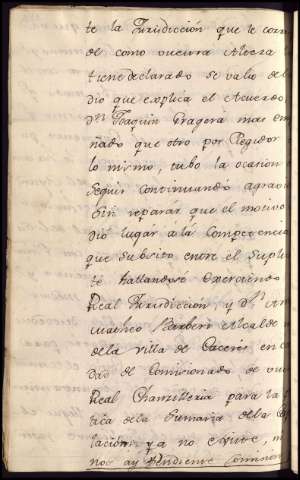 te la Jurisdiccion que le corr
de como vuestra Alteza
tiene declarado se valio de
dio que explica el Acuerdo,
Dn Joaquin Dragera mas em
ñado que otro por Regidor
lo mismo, tubo la ocasion
seguir continuando agravi
sin reparar que el motivo
dió lugar a la Competencia
que subsito entre el Supli
te hallandose exerciendo
Real Jurisdiccion, y Dn
Barbero Alcalde
de la villa de Caceres en ca
dad de Comicionado de vue
Real Chanzilleria para la
tica de la Sumaria de la
lacion, ya no existe,
nos ay Pendiente Comicion